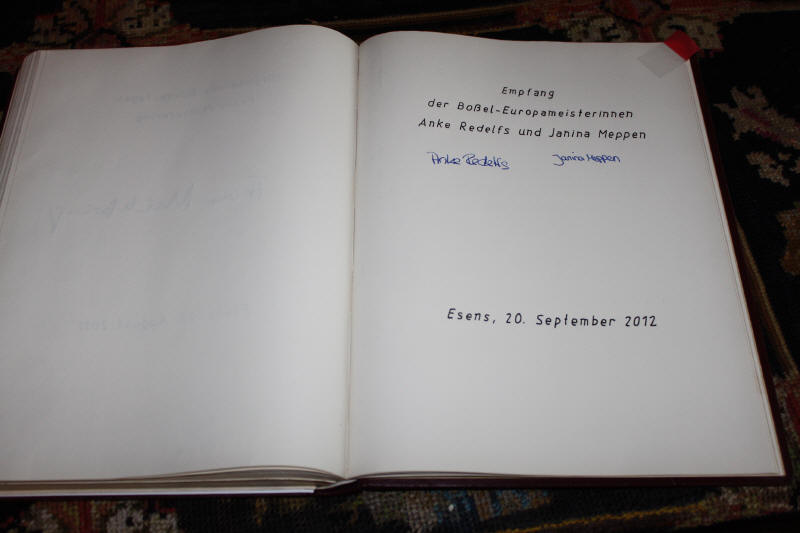 Empfang
der Boßel-Europameisterinnen
Anke Redelfs und Janina Meppen
Anke Redelfs Janina Meppen
Esens, 20. September 2012